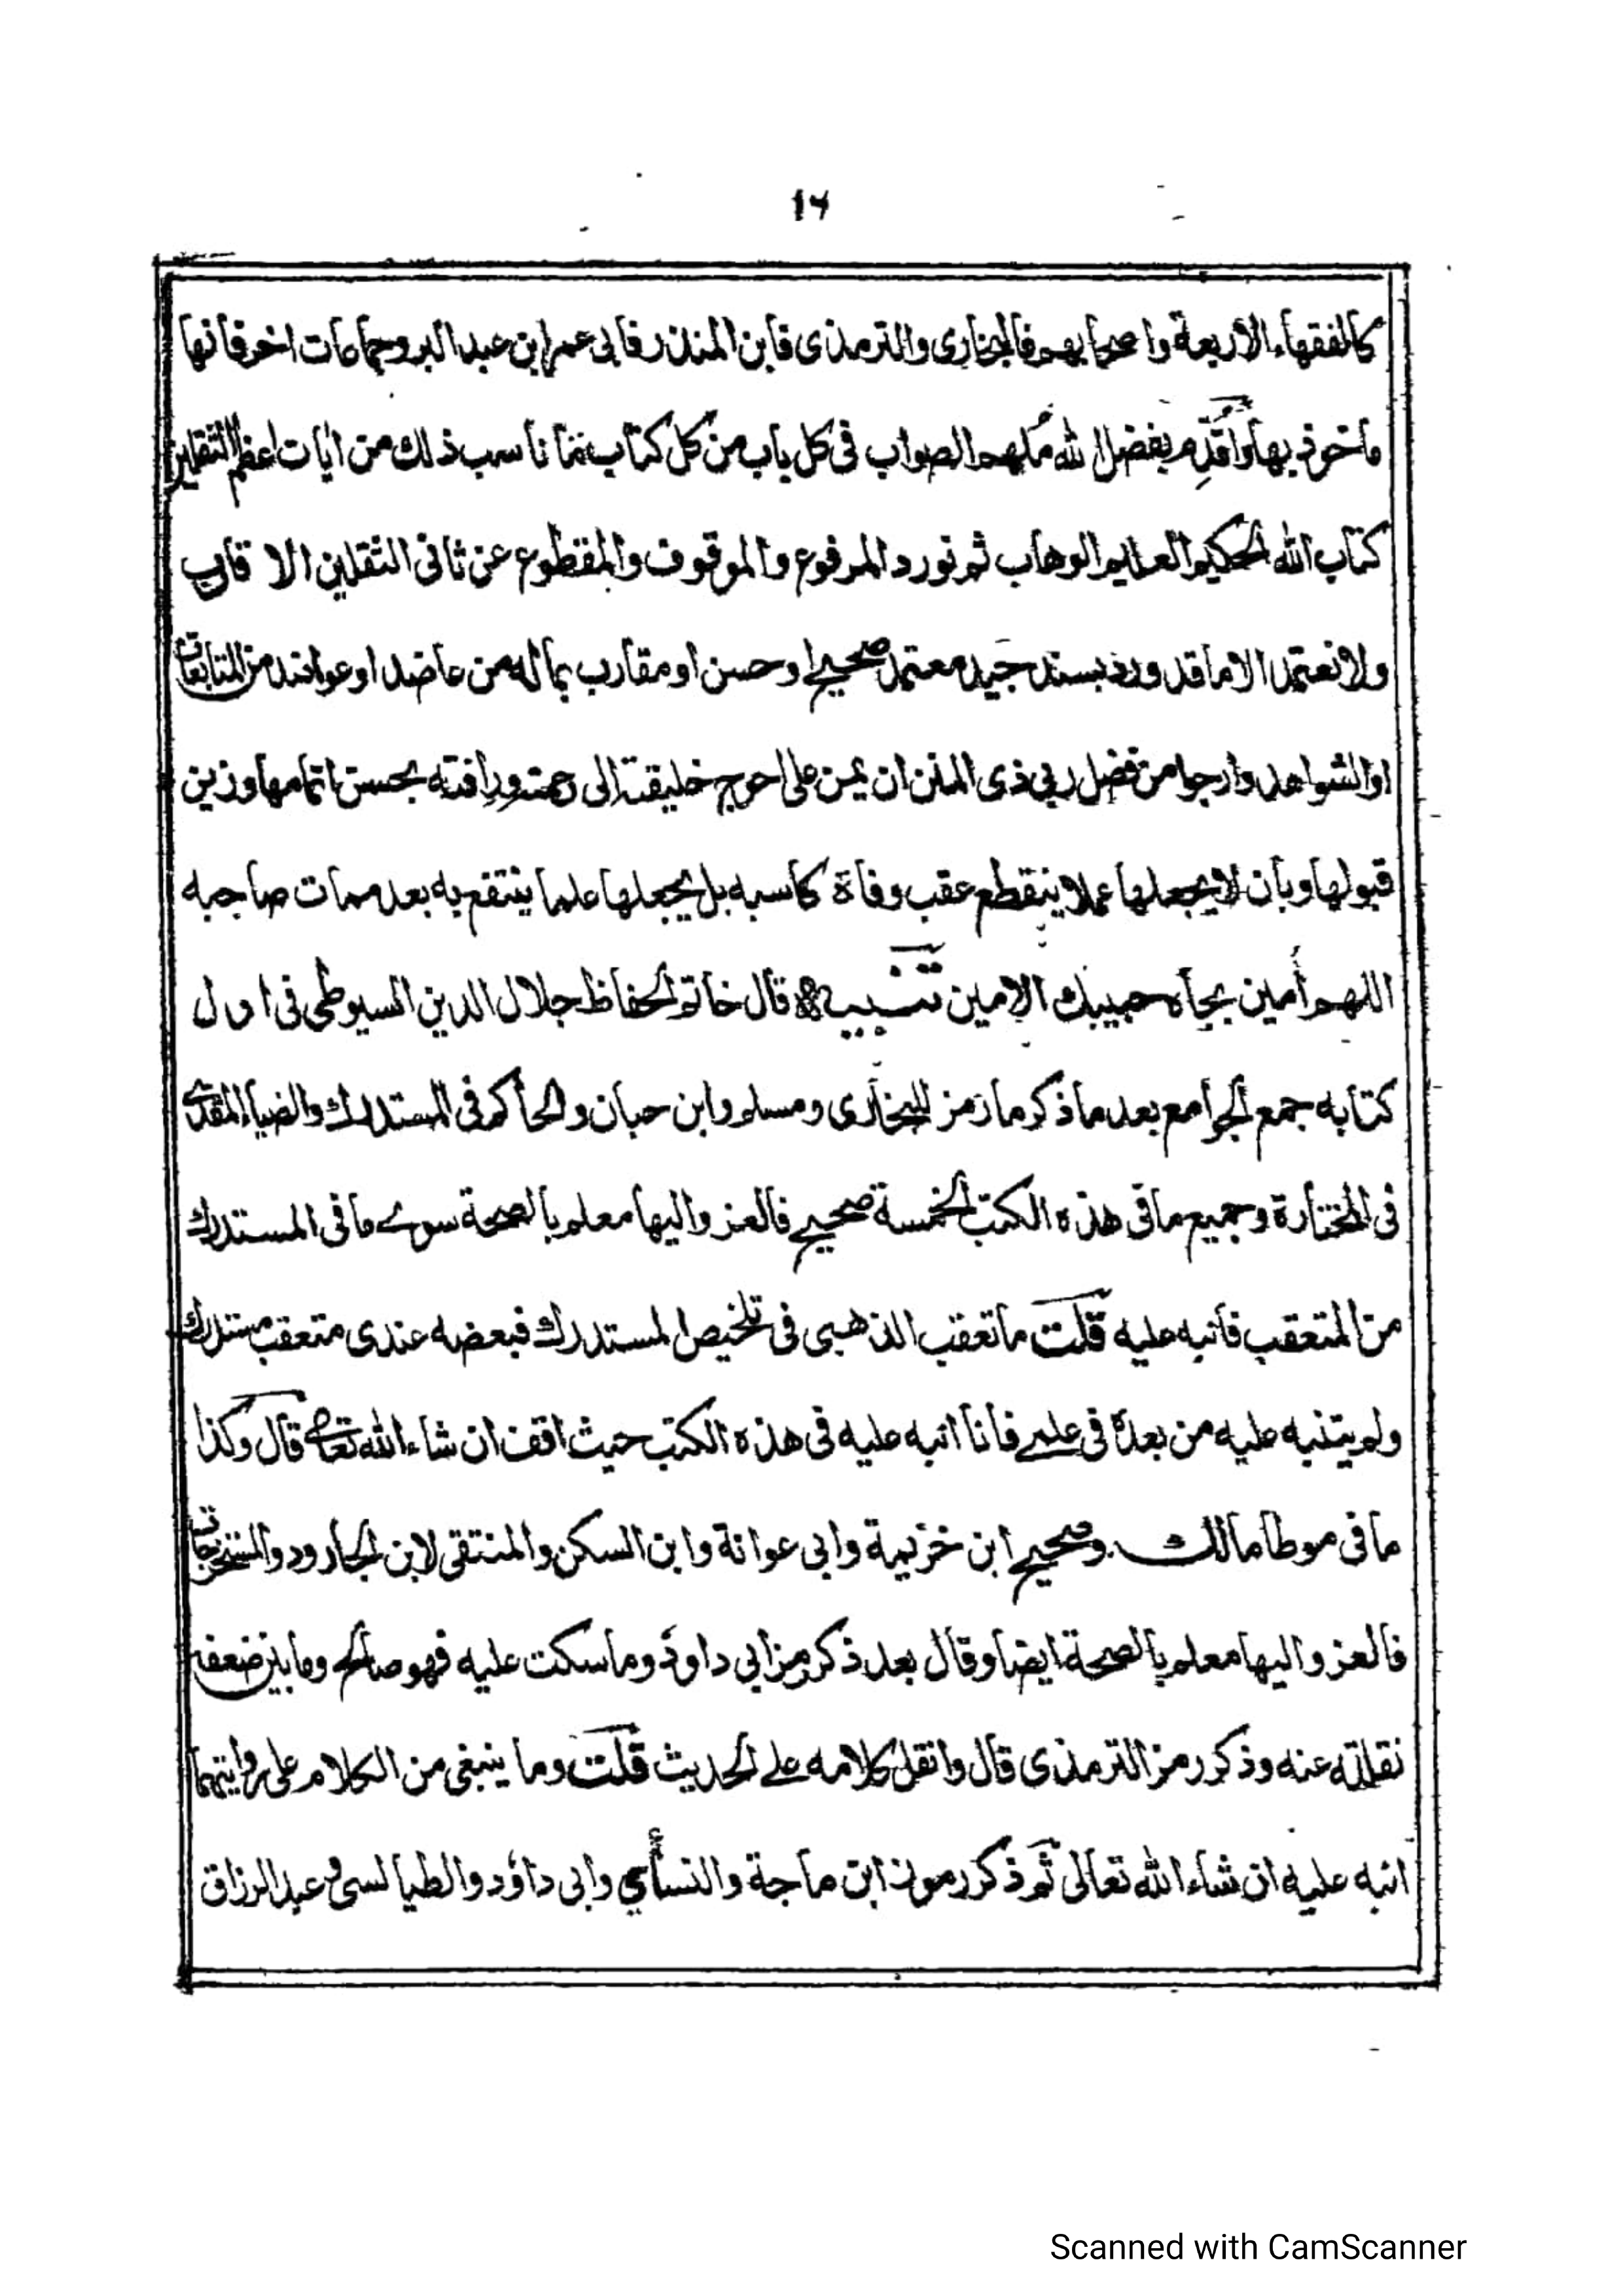 ١٦
كالفقهاء الاربعة واصحابهم فالبخارى والترمذى فابن المنذر فابى عمر ابن عبد البر وجماعات اخر فانها
ماخوذ بها واقدم بفضل الله ملهم الصواب فى كل باب من كل كتاب ما ناسب ذلك من ايات اعظم الثقلين
كتاب الله الحكيم العليم الوهاب ثم نورد المرفوع والموقوف والمقطوع عن ثانى الثقلين الا قارب
ولا نعتمد الا ما قد ورد بسند جيد معتمد صحيح او حسن او مقارب بماله من عاضد او عواضد من المتابعات
او الشواهد وارجو من فضل ربى ذى المنن ان يمن على احوج خليقته الى رحمته ورافته بحسن اتمامها وزين
قبولها وبان لا يجعلها عملا ينقطع عقب وفاة كاسبه بل يجعلها علما ينتفع به بعد ممات صاحبه
اللهم أمين بجاه حبيبك الامين تنبيه قال خاتم الحفاظ جلال الدين السيوطى فى اول
كتابه جمع الجوامع بعد ما ذكر ما رمز للبخارى ومسلم وابن حبان والحاكم فى المستدرك والضياء المقدسى
فى المختارة وجميع ما فى هذه الكتب الخمسة صحيح فالعزو اليها معلم بالصحة سوے ما فى المستدرك
من المتعقب فانبه عليه قلت ما تعقب الذهبى فى تلخيص المستدرك فبعضه عندى متعقب مستدرك
ولم يتنبه عليه من بعده فى علمے فانا انبه عليه فى هذه الكتب حيث اقف ان شاء الله تعالى قال وكذا
ما فى موطا مالك وصحيح ابن خزيمة وابى عوانة وابن السكن والمنتقى لابن الجارود والمستخرجات
فالعزو اليها معلم بالصحة ايضا وقال بعد ذكر رمز ابى داود وما سكت عليه فهو صالح وما بين ضعفه
نقلته عنه وذكر رمز الترمذى قال وانقل كلامه على الحديث قلت وما ينبغى من الكلام على روايتهما
انبه عليه ان شاء الله تعالى ثم ذكر رموز ابن ماجة والنسأى وابى داؤد والطيالسى وعبد الرزاق
Scanned with CamScanner